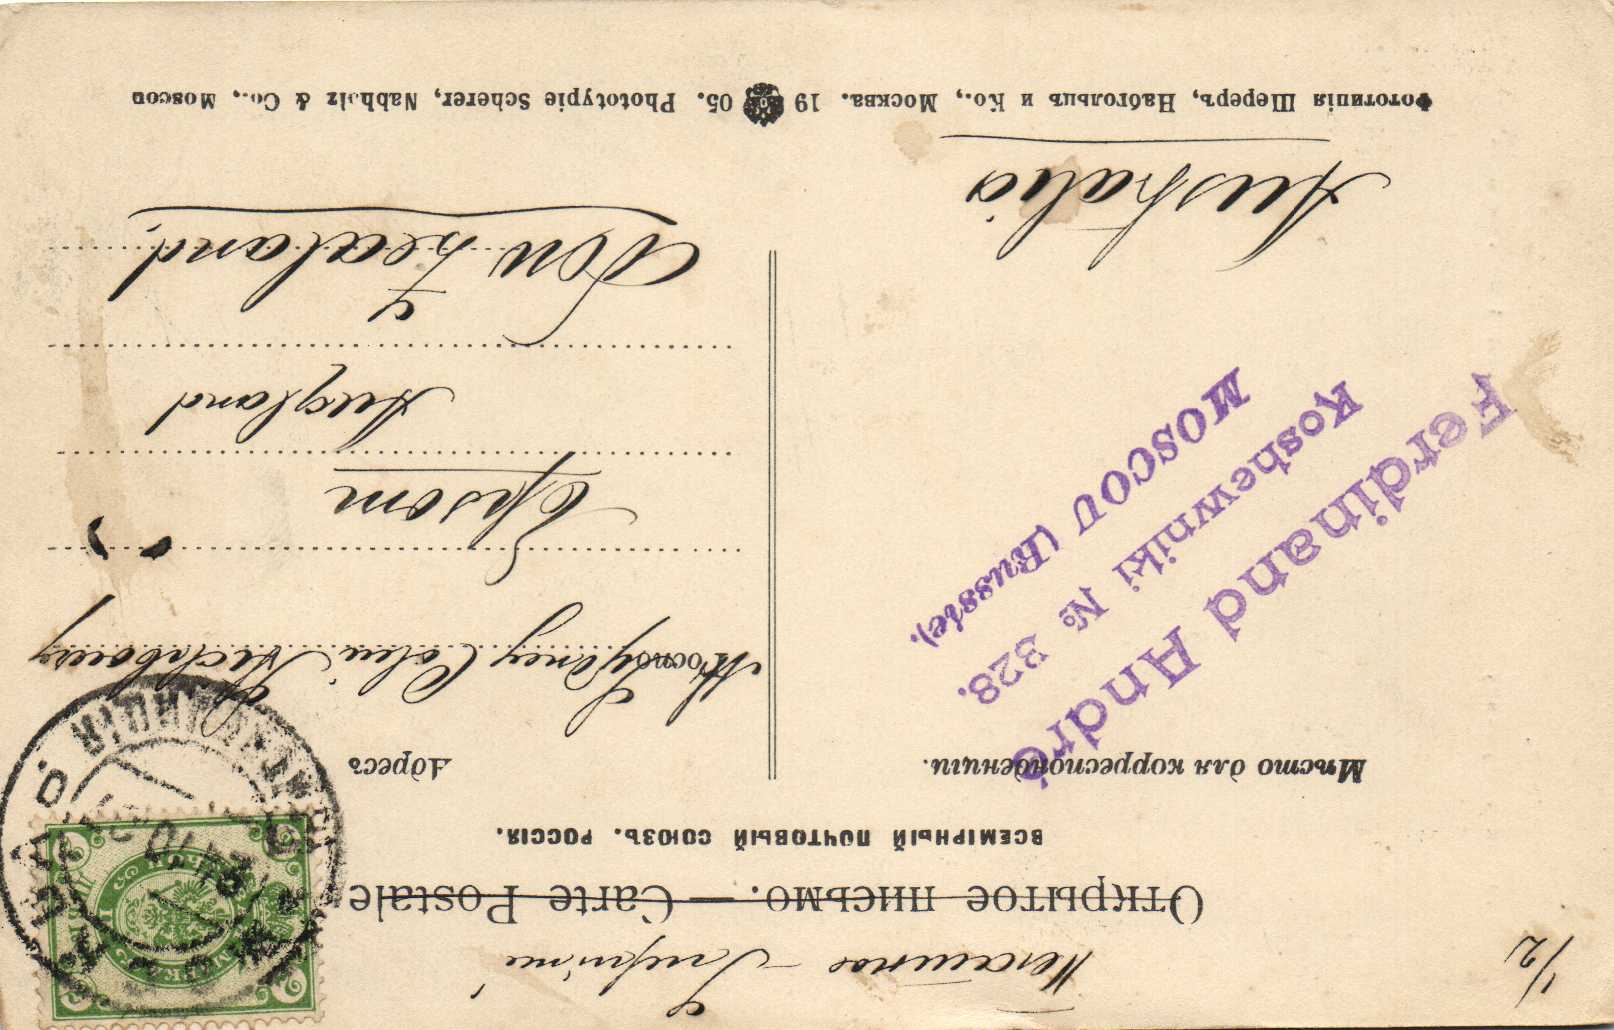 1/2
Печатное – Imprimé
Открытое письмо. — Carte Postale
ВСЕМІРНЫЙ ПОЧТОВЫЙ СОЮЗЪ. РОССІЯ.
Мѣсто для корреспонденціи.
Ferdinand André
Koshewniki № 328.
MOSCOU (Russie).
Australia
Адресъ
Sydney Colin
Epsom
Auckland
New Zealand.
Фототипія Шереръ, Набгольцъ и Ко., Москва. 19 05. Phototypie Scherer, Nabholz & Co., Moscou